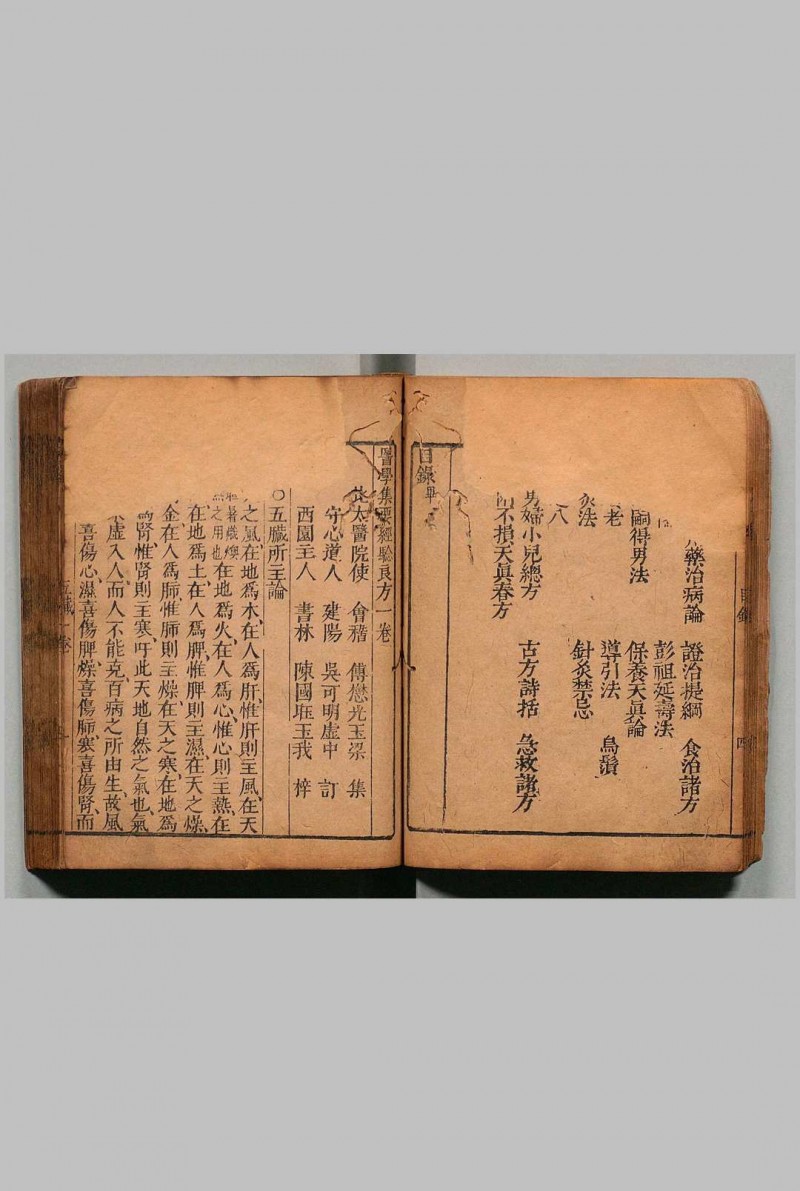 藥治病論 證治提綱 食治諸方
彭祖延壽法
嗣得男法 保養天眞論
老 導引法 烏鬚
灸法 針灸禁忌
八
男婦小兒總方 古方詩括 急救諸方
不損天眞春方
目錄畢
目錄
四
醫學集要經驗良方一卷
太醫院使 會稽 傅懋光玉梁 集
守心道人 建陽 吳可明虛中 訂
西園主人 書林 陳國旺玉我 梓
○五臟所主論
之風在地爲木在人爲肝惟肝則主風在天
在地爲火在人爲心惟心則主熱在
在地爲土在人爲脾惟脾則主濕在天之燥
金在人爲肺惟肺則主燥在天之寒在地爲
腎惟腎則主寒吁此天地自然之氣也氣
虛入人而人不能克百病之所由生故風
喜傷心濕喜傷脾燥喜傷肺寒喜傷腎而
一卷